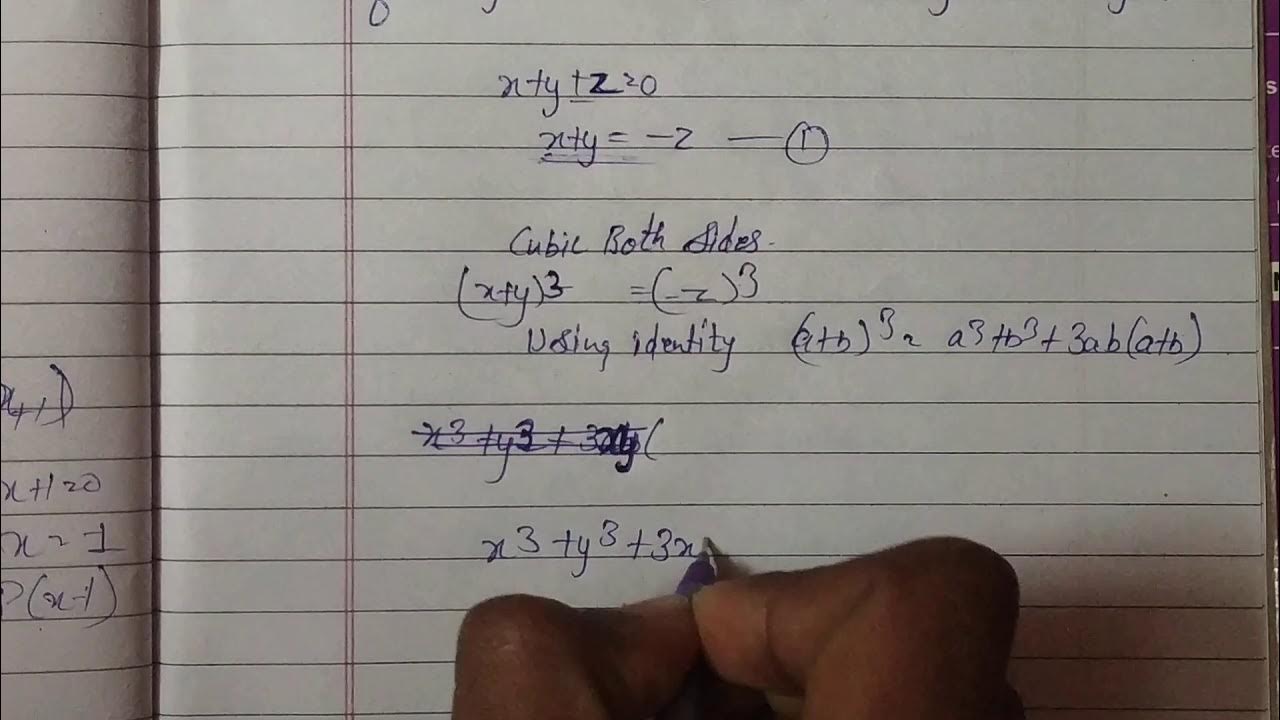 x+y+z=0
x+y = -z — ①
Cubic Both Sides.
(x+y)3 = (-z)3
Using identity (a+b)3 = a3+b3+3ab(a+b)
x3+y3+3xy(
x3+y3+3x
x+1=0
x = 1
P(x-1)